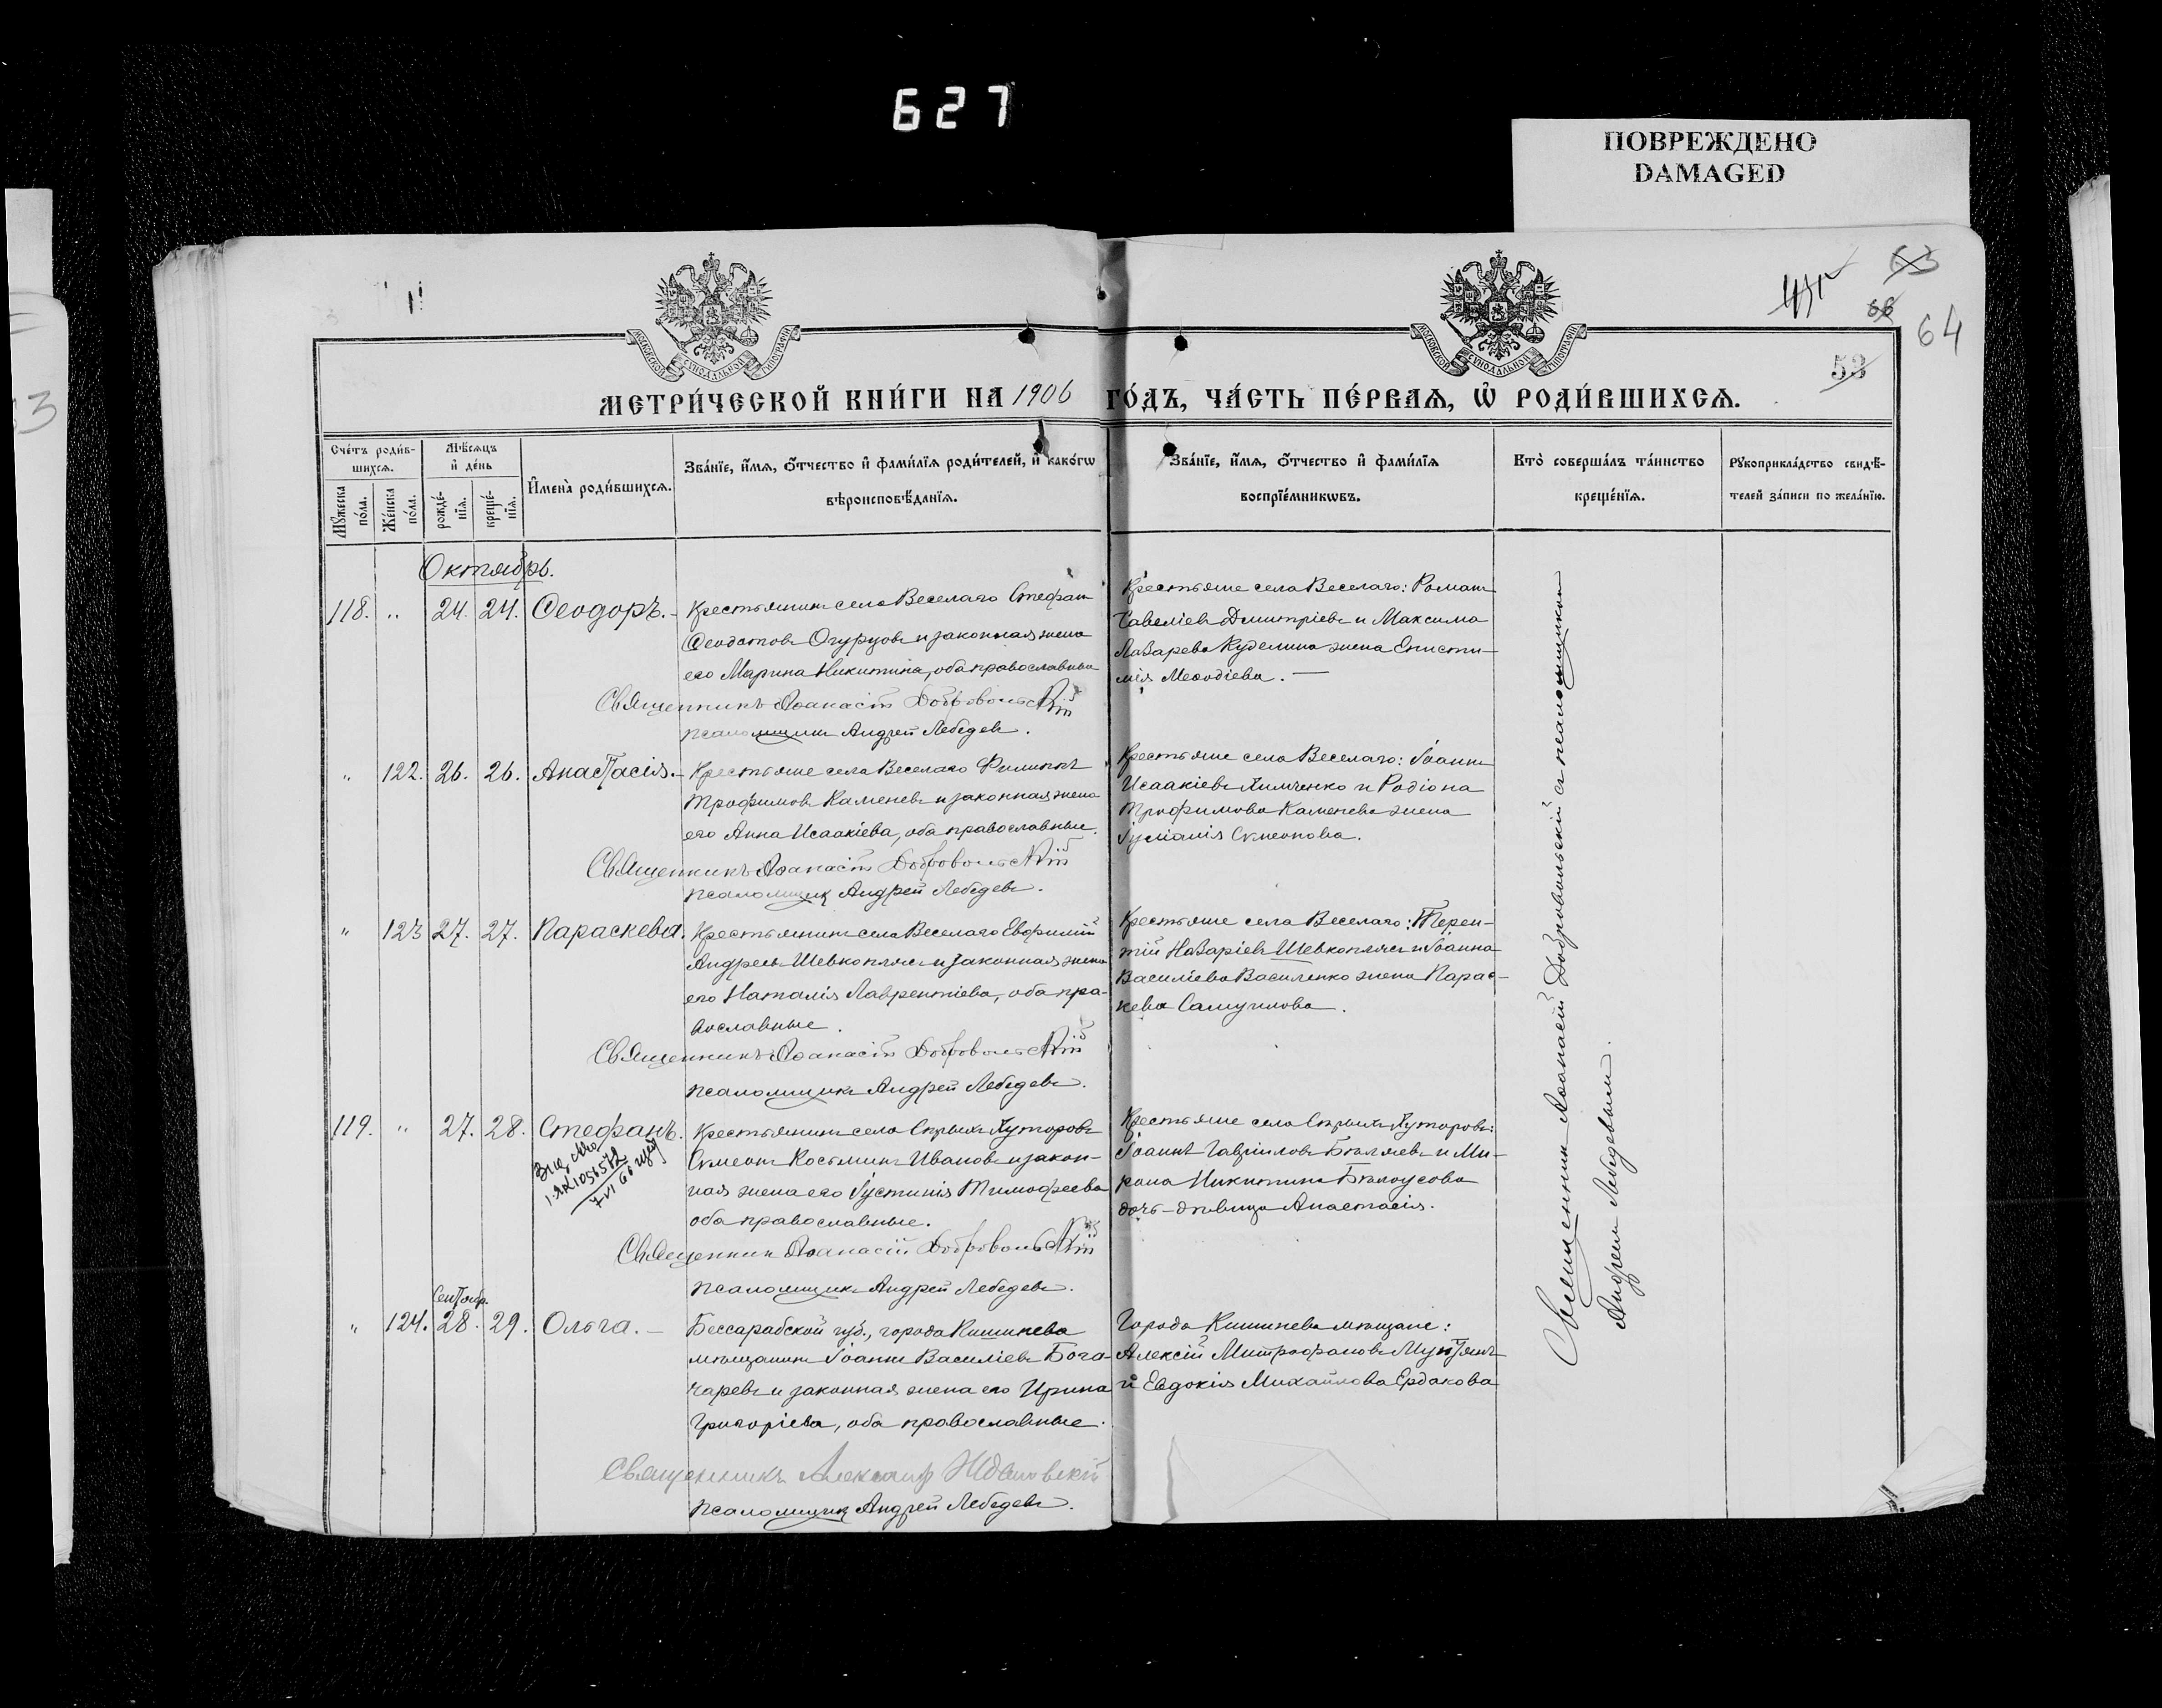 627
ПОВРЕЖДЕНО
DAMAGED
63
66
64
53
МОСКОВСКОЙ СѴНОДАЛЬНОЙ ТИПОГРАФІИ
МОСКОВСКОЙ СѴНОДАЛЬНОЙ ТИПОГРАФІИ
МЕТРИ́ЧЕСКОЙ КНИ́ГИ НА 1906 ГО́ДЪ, ЧА́СТЬ ПЕ́РВАЯ, Ѡ҆ РОДИ́ВШИХСЯ.
Сче́тъ роди́в-
шихся.
Мѣ́сяцъ
и҆ де́нь
Мꙋ́жеска по́ла.
Же́нска по́ла.
рожде́-
нїя.
креще́-
нїя.
И҆мена̀ роди́вшихся.
Зва́нїе, и҆́мя, ѻ҆́тчество и҆ фами́лїя роди́телей, и҆ како́гѡ
вѣроисповѣ́данїя.
Зва́нїе, и҆́мя, ѻ҆́тчество и҆ фами́лїя
воспрїе́мникѡвъ.
Кто̀ соверша́лъ та́инство
креще́нїя.
Рꙋкоприкла́дство свидѣ́-
телей за́писи по жела́нїю.
Октябрь.
118. " 24. 24. Ѳеодоръ.
Крестьянинъ села Веселаго Стефанъ
Ѳеодотовъ Огурцовъ и законная жена
его Марина Никитина, оба православные
Священникъ Аѳанасій Добровольскій
псаломщикъ Андрей Лебедевъ.
Крестьяне села Веселаго: Романъ
Савеліевъ Димитріевъ и Максима
Лазарева Куделина жена Еписти-
мія Меѳодіева.
" 122. 26. 26. Анастасія.
Крестьяне села Веселаго Филиппъ
Трофимовъ Каменевъ и законная жена
его Анна Исаакіева, оба православные.
Священникъ Аѳанасій Добровольскій
псаломщикъ Андрей Лебедевъ.
Крестьяне села Веселаго: Іоаннъ
Исаакіевъ Химченко и Родіона
Трофимова Каменева жена
Іуліанія Симеонова.
" 123 27. 27. Параскева.
Крестьянинъ села Веселаго Евфимій
Андреевъ Шевкоплясъ и законная жена
его Наталія Лаврентіева, оба пра-
вославные.
Священникъ Аѳанасій Добровольскій
псаломщикъ Андрей Лебедевъ.
Крестьяне села Веселаго: Терен-
тій Назаріевъ Шевкоплясъ и Іоанна
Василіева Василенко жена Парас-
кева Самуилова.
119. " 27. 28. Стефанъ.
Крестьянинъ села Старыхъ Хуторовъ
Симеонъ Косьминъ Ивановъ и закон-
ная жена его Іустинія Тимофеева
оба православные.
Священникъ Аѳанасій Добровольскій
псаломщикъ Андрей Лебедевъ.
Крестьяне села Старыхъ Хуторовъ:
Іоаннъ Гавріиловъ Бѣляевъ и Ми-
рона Никитина Бѣлоусова
дочь-дѣвица Анастасія.
Сентябр.
" 124. 28. 29. Ольга.
Бессарабской губ., города Кишинева
мѣщанинъ Іоаннъ Василіевъ Бога-
чаревъ и законная жена его Ирина
Григоріева, оба православные.
Священникъ Александръ
псаломщикъ Андрей Лебедевъ.
Города Кишинева мѣщане:
Алексій Митрофановъ Мунтянъ
и Евдокія Михайлова Ердакова
Священникъ Аѳанасій Добровольскій съ псаломщикомъ
Андреемъ Лебедевымъ.